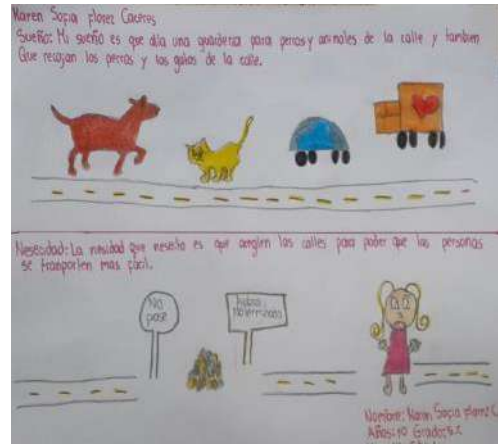 Karen Sofia florez Caceres
Sueño: Mi sueño es que alla una guarderia para perros y animales de la calle y tambien
Que recojan los perros y los gatos de la calle.
Nesecidad: La nesidad que nesesito es que arreglen las calles para poder que las personas
se tranporten mas facil.
No
pase
no terminada
Nombre: Karen Sofia florez C
Años: 10 Grado: